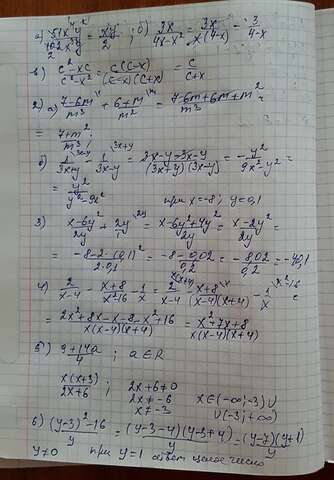 а) 51x⁴y²/102x³y = xy/2; б) 3x/4x-x² = 3x/x(4-x) = 3/4-x
в) c²-xc/c²-x² = c(c-x)/(c-x)(c+x) = c/c+x
2. а) 7-6m/m³ + 6+m/m² = 7-6m+6m+m²/m³ =
= 7+m²/m³;
б) 1/3x+y - 1/3x-y = 3x-y-3x-y/(3x+y)(3x-y) = - y²/9x²-y² =
= y²/y²-9x²
при x=-8; y=0,1
3) x-6y²/2y + 2y/1 = x-6y²+4y²/2y = x-2y²/2y =
= -8-2·(0,1)²/2·0,1 = -8-0,02/0,2 = -8,02/0,2 = -40,1
4) 2/x-4 - x+8/x²-16 - 1/x = 2/x-4 - x+8/(x-4)(x+4) - 1/x =
= 2x²+8x-x-8-x²+16/x(x-4)(x+4) = x²+7x+8/x(x-4)(x+4)
5) 9+14a/4; a∈R
x(x+3)/2x+6; 2x+6≠0
2x≠-6
x≠-3
x∈(-∞;-3)∪
∪(-3;+∞)
6) (y-3)²-16/y = (y-3-4)(y-3+4)/y = (y-7)(y+1)/y
y≠0 при y=1 ответ целое число